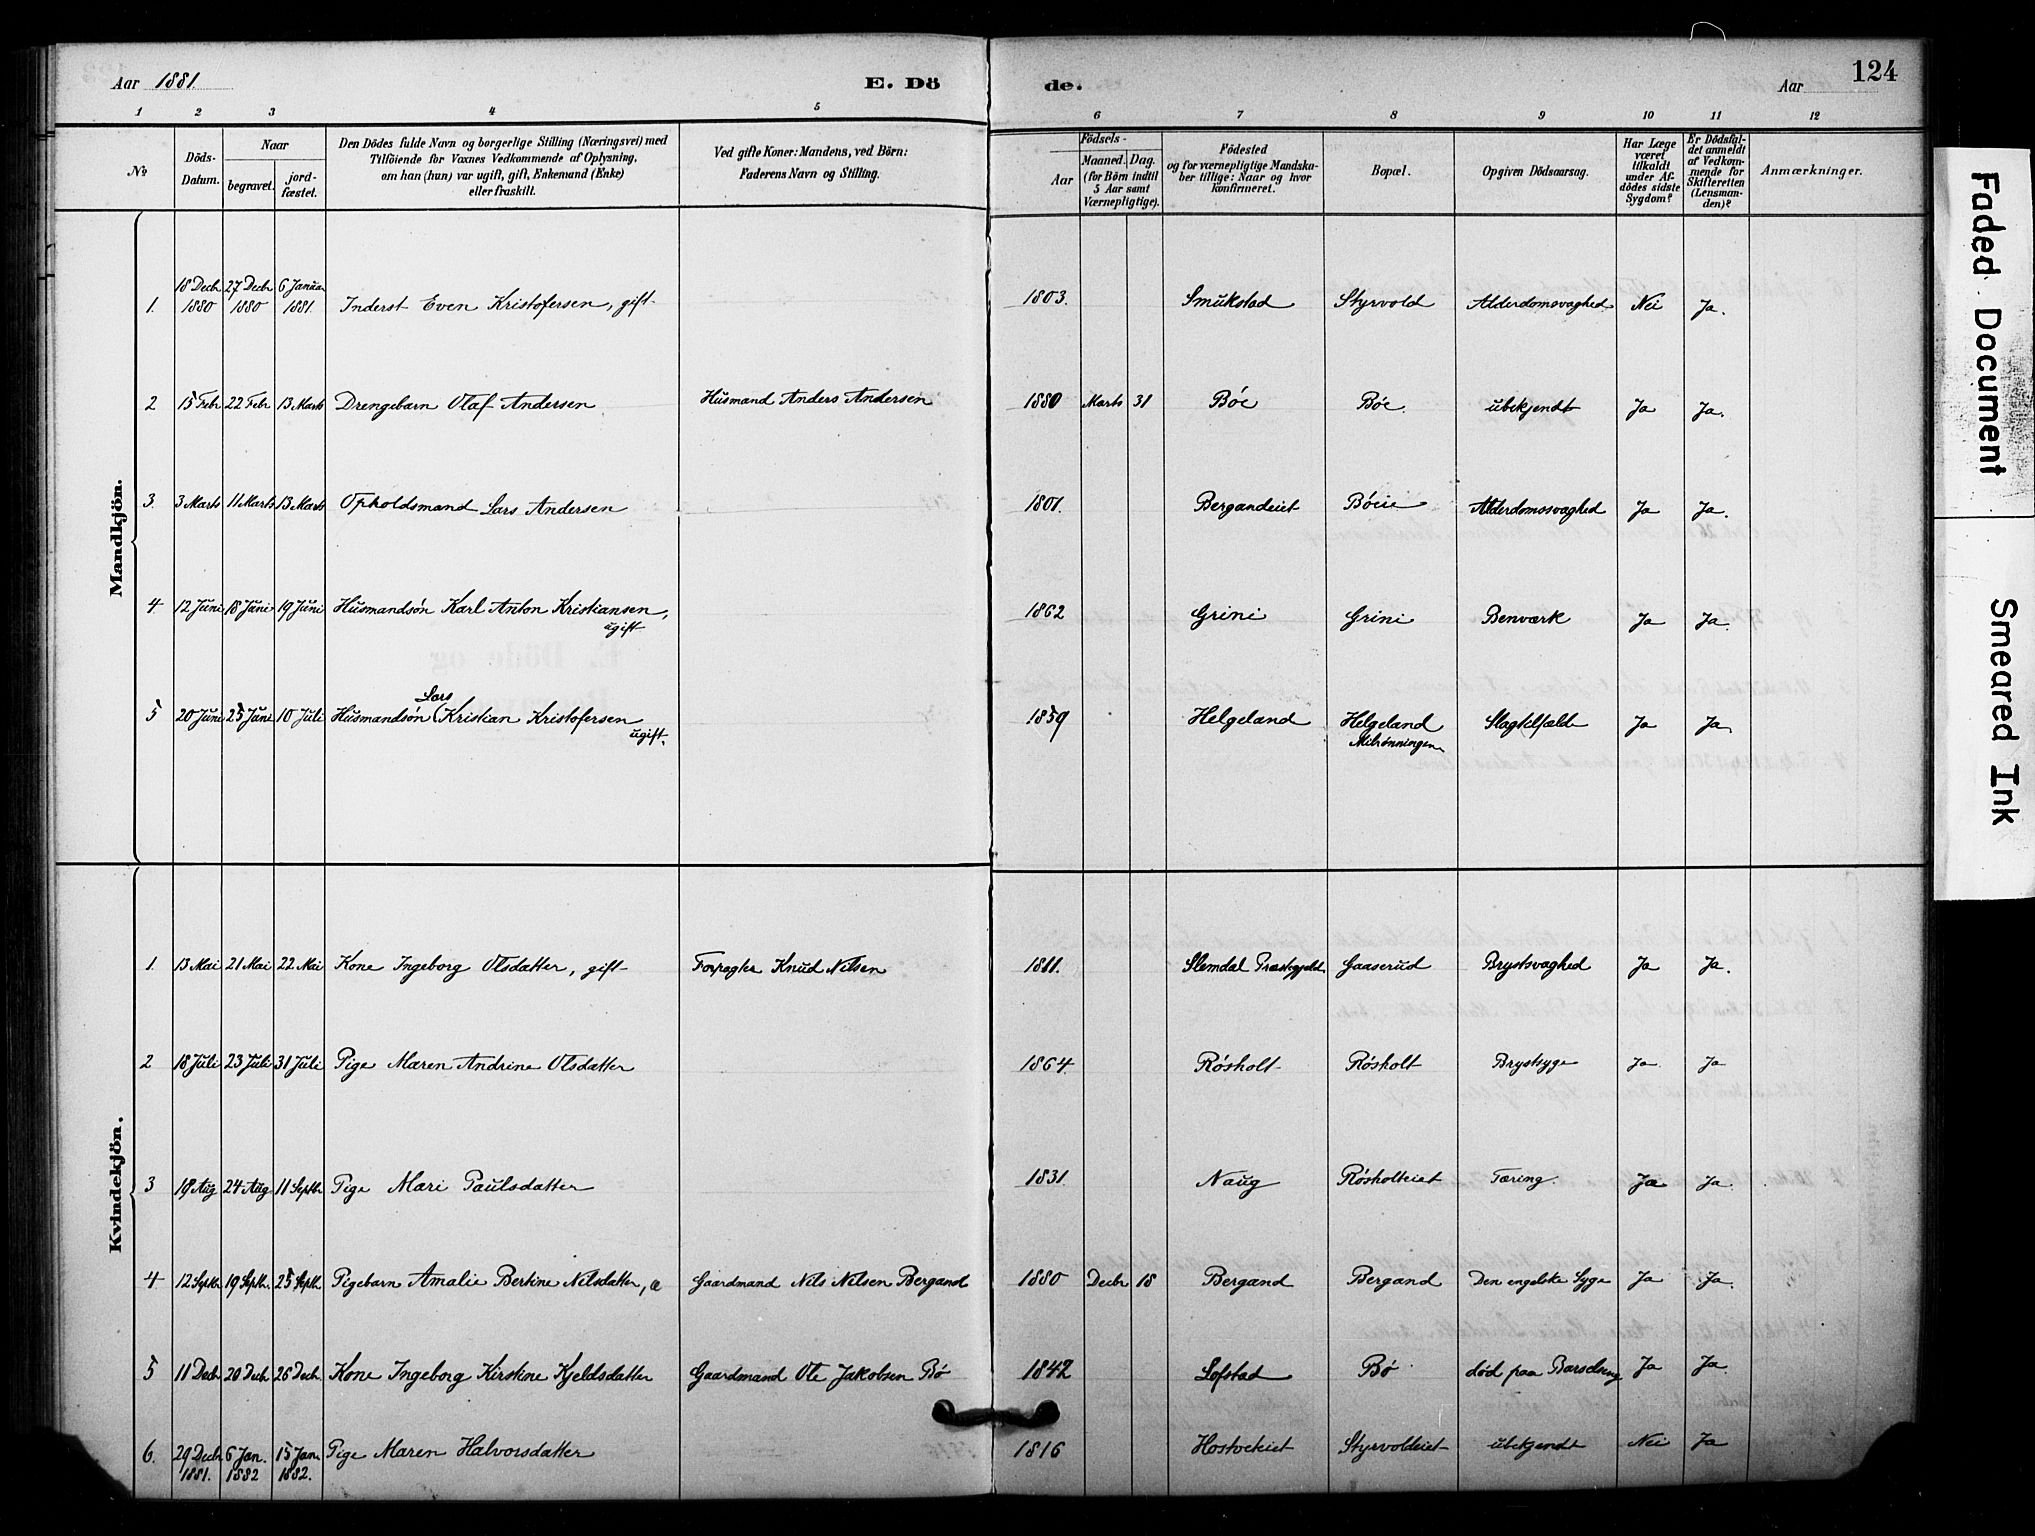 Aar 1881.
E. Dö
de.
Aar
124
1 2 3 4 5 6 7 8 9 10 11 12
№
Döds-Datum.
Naar
begravet.
jord-fæstet.
Den Dödes fulde Navn og borgerlige Stilling (Næringsvei) med
Tilföiende for Voxnes Vedkommende af Oplysning,
om han (hun) var ugift, gift, Enkemand (Enke)
eller fraskilt.
Ved gifte Koner: Mandens, ved Börn:
Faderens Navn og Stilling.
Födsels-
Aar
Maaned. Dag.
(for Börn indtil
5 Aar samt
Værnepligtige).
Födested
og for værnepligtige Mandska-
ber tillige: Naar og hvor
konfirmeret.
Bopæl.
Opgiven Dödsaarsag.
Har Læge
været
tilkaldt
under Af-
dödes sidste
Sygdom?
Er Dödsfal-
det anmeldt
af Vedkom-
mende for
Skifteretten
(Lensman-
den)?
Anmærkninger.
Mandkjön.
1. 18 Decbr 1880 27 Decbr 1880 6 Januar 1881. Inderst Even Kristofersen, gift 1803. Smukstad Styrvold Alderdomsvaghed Nei Ja.
2 15 Febr 22 Febr 13 Marts Drengebarn Olaf Andersen Husmand Anders Andersen 1880 Marts 31 Bóe Bóe ubekjendt Ja Ja.
3. 3 Marts 11 Marts 13 Marts Opholdsmand Lars Andersen 1801. Bergandeiet Bóeie Alderdomssvaghed Ja Ja.
4 12 Juni 18 Juni 19 Juni Husmandsøn Karl Anton Kristiansen, ugift 1862 Grini Grini Benværk Ja Ja.
5 20 Juni 25 Juni 10 Juli Husmandsøn Lars Kristian Kristofersen ugift. 1859 Helgeland Helgeland Slagtilfælde Ja Ja.
Kvindekjön.
1. 13 Mai 21 Mai 22 Mai Kone Ingeborg Olsdatter, gift Forpagter Knud Nilsen 1811. Slemdal Præstegjeld Gaaserud Brystsvaghed Ja Ja.
2 18 Juli 23 Juli 31 Juli Pige Maren Andrine Olsdatter 1864. Røsholt Røsholt Brystsyge Ja Ja
3 19 Aug 24 Aug 11 Septbr Pige Mari Paulsdatter 1831. Naug Røsholteiet Tæring. Ja Ja.
4 12 Septbr 19 Septbr. 25 Septbr Pigebarn Amalie Bertine Nilsdatter, Gaardmand Nils Nilsen Bergand 1880 Decbr 18 Bergand Bergand Den engelske Syge Ja Ja.
5 11 Decbr 20 Decbr 26 Decbr Kone Ingeborg Kirstine Kjeldsdatter Gaardmand Ole Jakobsen Bø 1842 Lofstad Bø død paa Barselseng Ja Ja.
6. 29 Decbr 1881. 6 Jan. 1882 15 Jan 1882. Pige Maren Halvorsdatter 1816 Styrvoldeiet ubekjendt Nei Ja
Faded Document
Smeared Ink